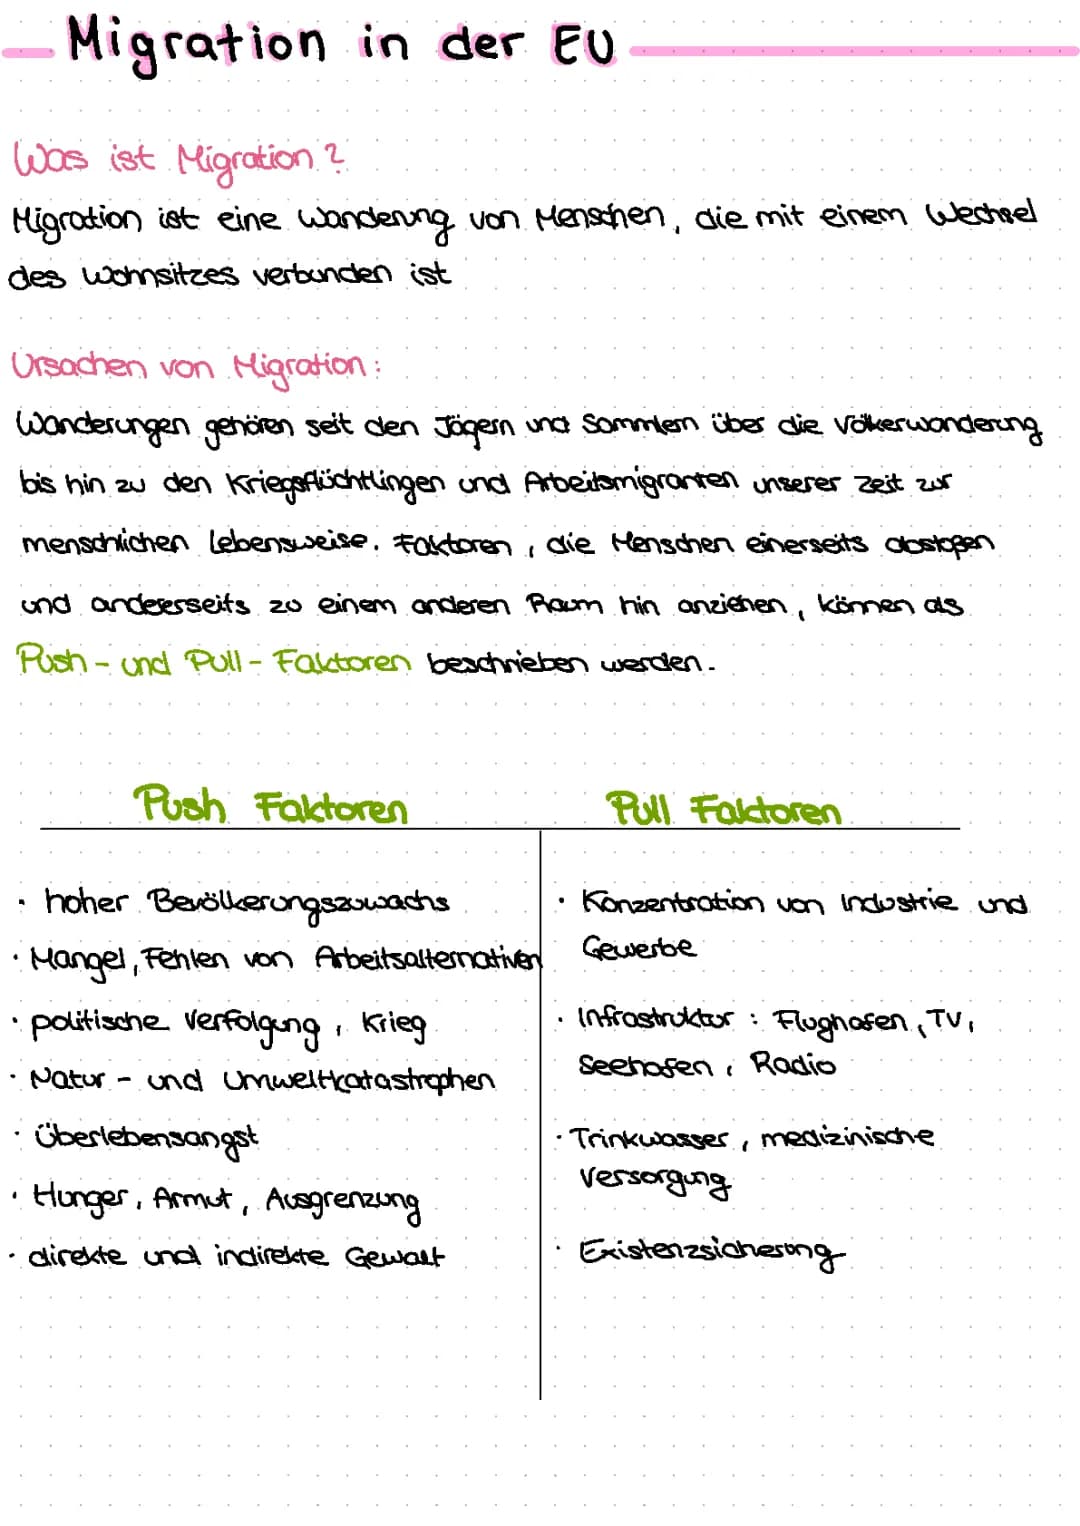 Migration in der EU
Was ist Migration?
Migration ist eine Wanderung von Menschen, die mit einem Wechsel
des Wohnsitzes verbunden ist
Ursachen von Migration:
Wanderungen gehören seit den Jägern und Sammlern über die Völkerwanderung
bis hin zu den Kriegsflüchtlingen und Arbeitsmigranten unserer Zeit zur
menschlichen Lebensweise. Faktoren, die Menschen einerseits abstoßen
und andererseits zu einem anderen Raum hin anziehen, können als
Push- und Pull- Faktoren beschrieben werden.
Push Faktoren
· hoher Bevölkerungszuwachs
· Mangel, Fehlen von Arbeitsalternativen
· politische Verfolgung, Krieg
· Natur- und Umweltkatastrophen
· Überlebensangst
· Hunger, Armut, Ausgrenzung
· direkte und indirekte Gewalt
Pull Faktoren
· Konzentration von Industrie und
Gewerbe
· Infrastruktur: Flughafen, TV,
Seehafen, Radio
· Trinkwasser, medizinische
Versorgung
· Existenzsicherung